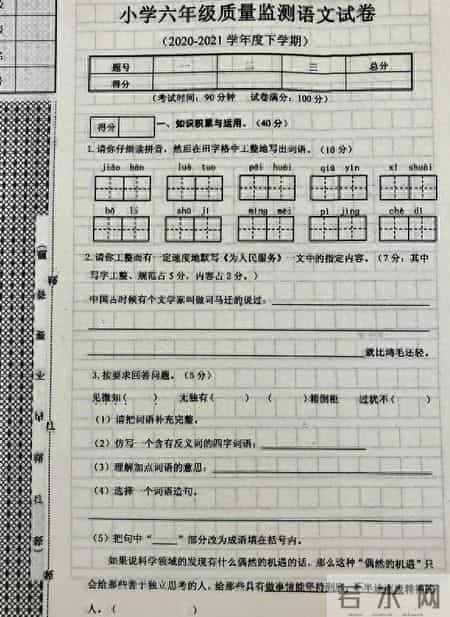 小学六年级质量监测语文试卷
（2020-2021学年度下学期）
题号 一 二 三 总分
得分
（考试时间：90分钟 试卷满分：100分）
得分
一、知识积累与运用。（40分）
1.请你仔细读拼音，然后在田字格中工整地写出词语。（10分）
jiāo luò tuo pái huái qiū yǐn xī shuài
bō li shū jí míng mèi pì jìng chè dǐ
2.请你工整而有一定速度地默写《为人民服务》一文中的指定内容。（7分：其中
写字工整、规范占5分，内容占2分。）
中国古时候有个文学家叫做司马迁的说过：
就比鸿毛还轻。
3.按要求回答问题。（5分）
见微知（ ） 无独有（ ） （ ）箱倒柜 过犹不（ ）
（1）请把词语补充完整。
（2）仿写一个含有反义词的四字词语：
（3）理解加点词语的意思：
（4）选择一个词语造句。
（5）把句中“____”部分改为成语填在括号内。
如果说科学领域的发现有什么偶然的机遇的话，那么这种“偶然的机遇”只
会给那些善于独立思考的人，给那些具有做事情能坚持到底，
人。（ ）
若水网